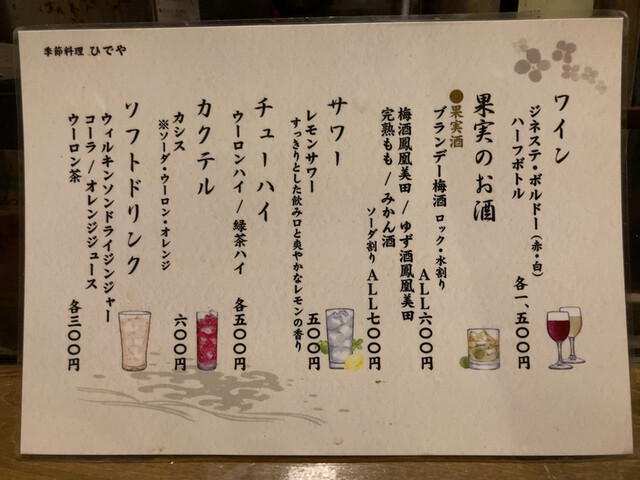 季節料理 ひでや
ワイン
ジネステ・ボルドー（赤・白）
ハーフボトル
各一、五〇〇円
果実のお酒
●果実酒
ブランデー梅酒 ロック・水割り
ALL六〇〇円
梅酒鳳凰美田/ゆず酒鳳凰美田
完熟もも/みかん酒
ソーダ割り ALL七〇〇円
サワー
レモンサワー
すっきりとした飲み口と爽やかなレモンの香り
五〇〇円
チューハイ
ウーロンハイ/緑茶ハイ
各五〇〇円
カクテル
カシス
※ソーダ・ウーロン・オレンジ
六〇〇円
ソフトドリンク
ウィルキンソンドライジンジャー
コーラ/オレンジジュース
ウーロン茶
各三〇〇円